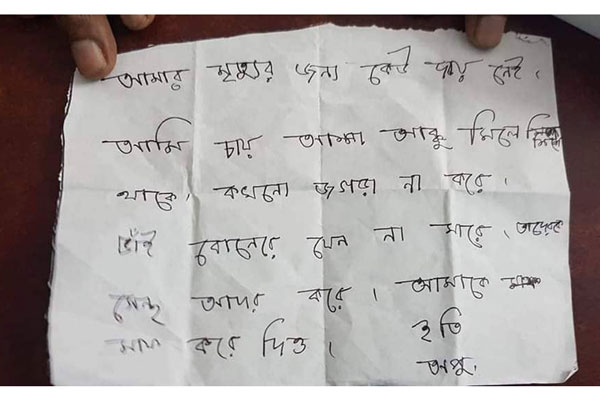 আমার মৃত্যুর জন্য কেউ দায় নেই।
আমি চায় আম্মা আব্বু মিলে মিশে
থাকে। কখনো জগরা না করে।
ভাই বোনেরে যেন না মারে। তাদেরকে
আদর করে। আমাকে
মাপ করে দিও।
ইতি
অপু.